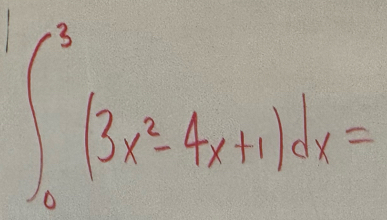 ∫₀³ (3x²-4x+1)dx =